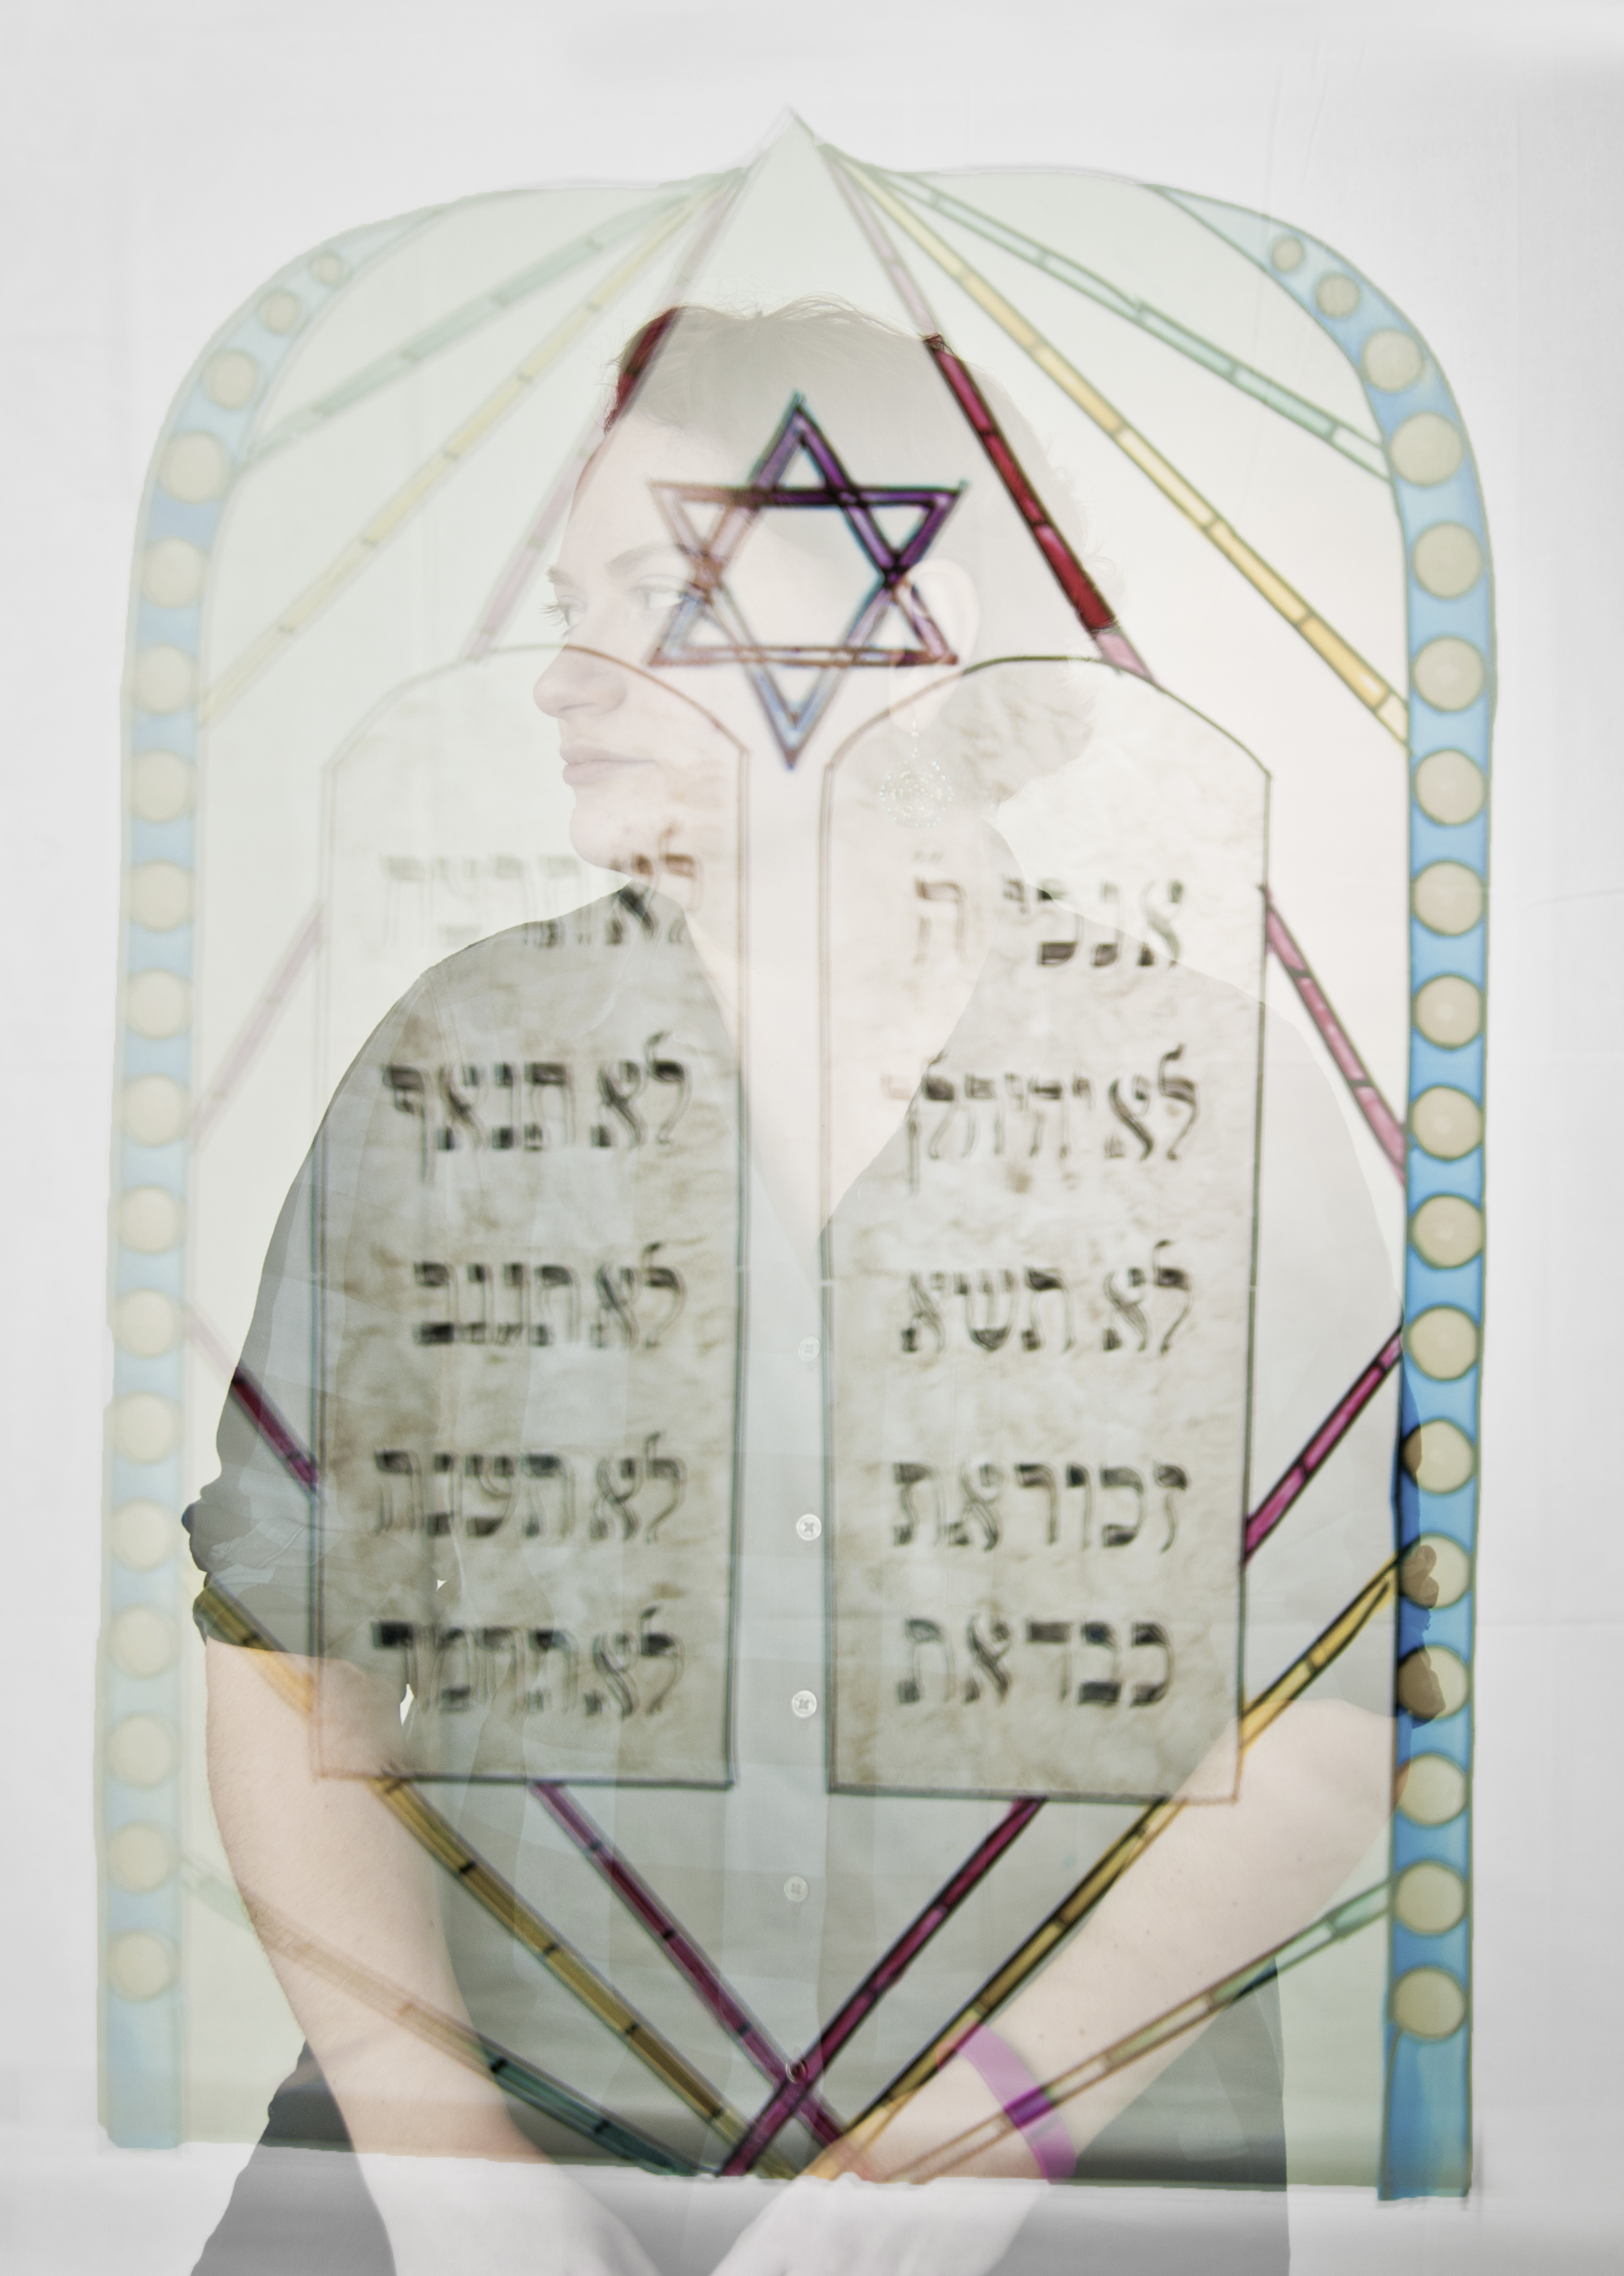 אנכי ה
לא יהיה לך
לא תשא
זכור את
כבד את
לא תרצח
לא תנאף
לא תגנב
לא תענה
לא תחמד